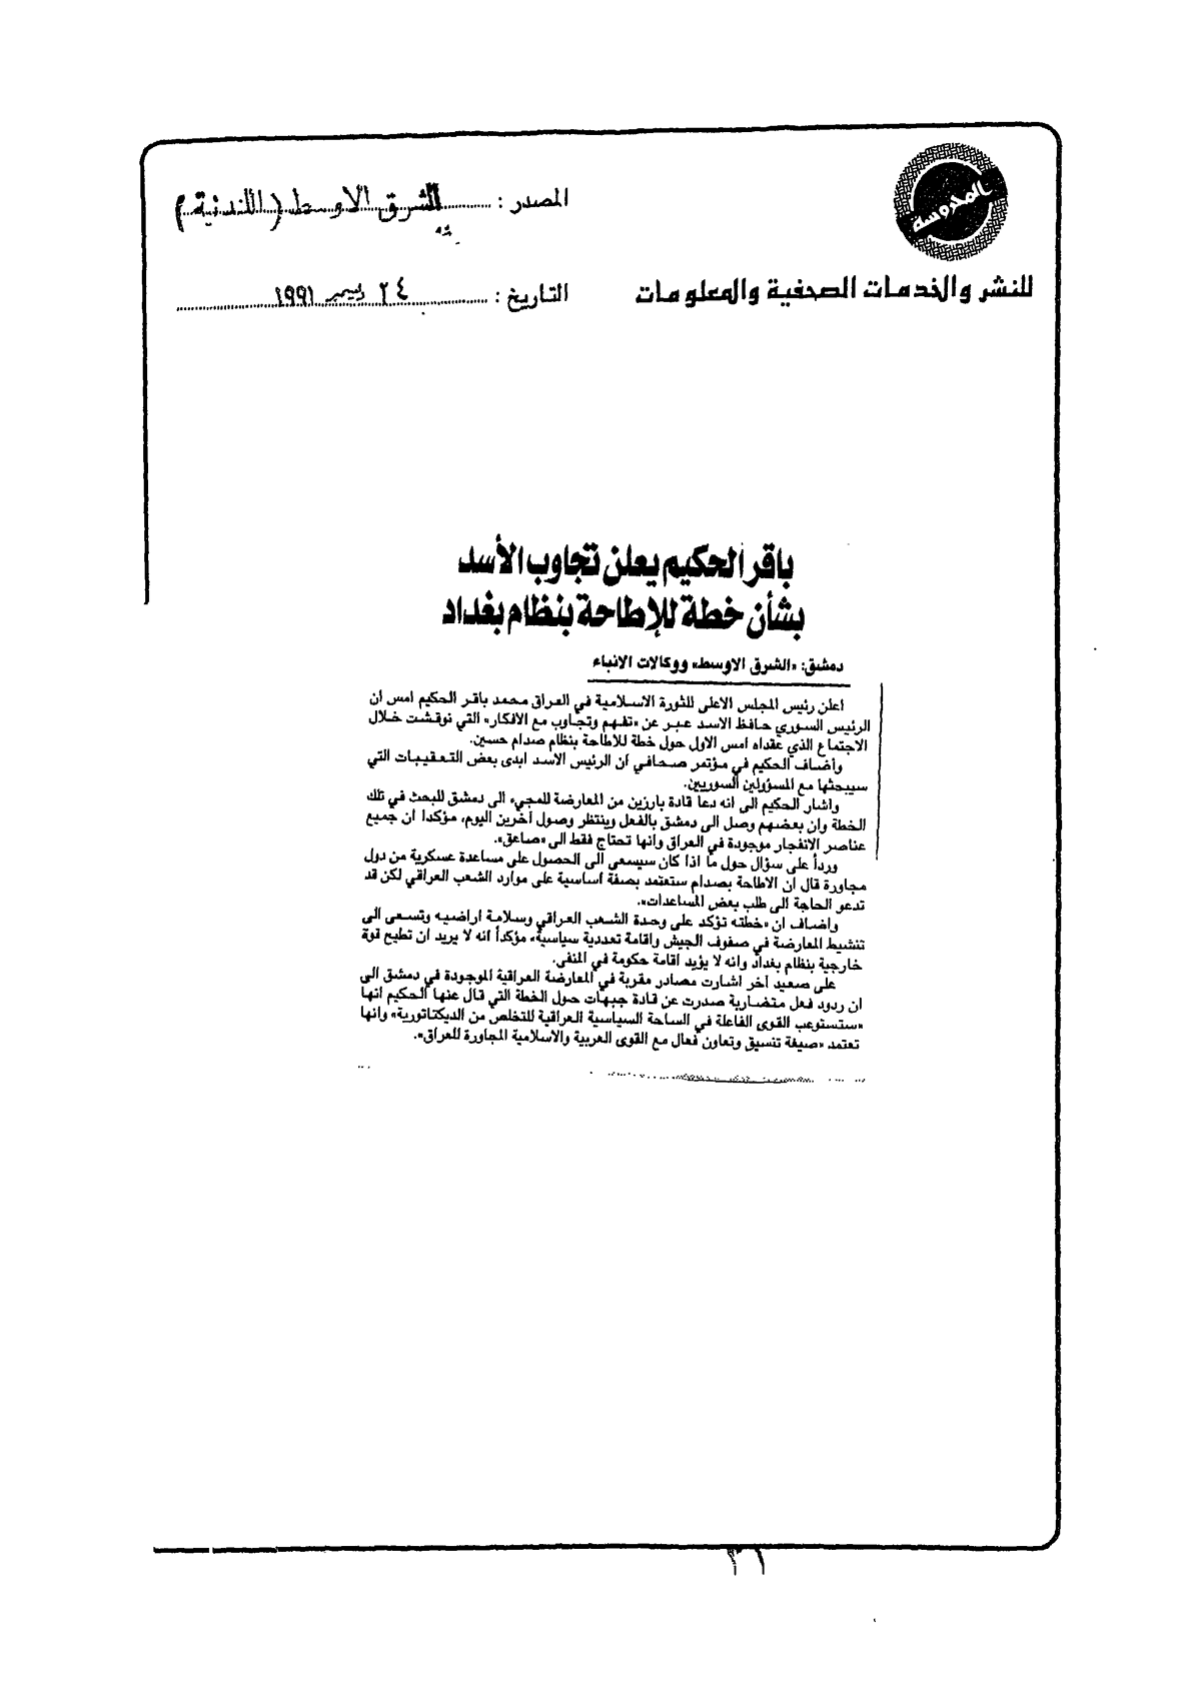 المحروسة
للنشر والخدمات الصحفية والمعلومات
المصدر : الشرق الاوسط (اللندنية)
التاريخ : ٢٤ ديسمبر ١٩٩١
باقر الحكيم يعلن تجاوب الأسد
بشأن خطة للإطاحة بنظام بغداد
دمشق: «الشرق الاوسط» ووكالات الانباء
اعلن رئيس المجلس الاعلى للثورة الاسلامية في العراق محمد باقر الحكيم امس ان
الرئيس السوري حافظ الاسد عبر عن «تفهم وتجاوب مع الافكار» التي نوقشت خلال
الاجتماع الذي عقداه امس الاول حول خطة للاطاحة بنظام صدام حسين.
وأضاف الحكيم في مؤتمر صحافي ان الرئيس الاسد ابدى بعض التعقيبات التي
سيبحثها مع المسؤولين السوريين.
واشار الحكيم الى انه دعا قادة بارزين من المعارضة للمجيء الى دمشق للبحث في تلك
الخطة وان بعضهم وصل الى دمشق بالفعل وينتظر وصول آخرين اليوم، مؤكدا ان جميع
عناصر الانفجار موجودة في العراق وانها تحتاج فقط الى «صاعق».
وردأ على سؤال حول ما اذا كان سيسعى الى الحصول على مساعدة عسكرية من دول
مجاورة قال ان الاطاحة بصدام ستعتمد بصفة اساسية على موارد الشعب العراقي لكن قد
تدعو الحاجة الى طلب بعض المساعدات».
واضاف ان «خطته تؤكد على وحدة الشعب العراقي وسلامة اراضيه وتسعى الى
تنشيط المعارضة في صفوف الجيش واقامة تعددية سياسية، مؤكدأ انه لا يريد ان تطيح قوة
خارجية بنظام بغداد وانه لا يؤيد اقامة حكومة في المنفى.
على صعيد آخر اشارت مصادر مقربة في المعارضة العراقية الموجودة في دمشق الى
ان ردود فعل متضاربة صدرت عن قادة جبهات حول الخطة التي قال عنها الحكيم انها
«ستستوعب القوى الفاعلة في الساحة السياسية العراقية للتخلص من الديكتاتورية» وانها
تعتمد «صيغة تنسيق وتعاون فعال مع القوى العربية والاسلامية المجاورة للعراق».